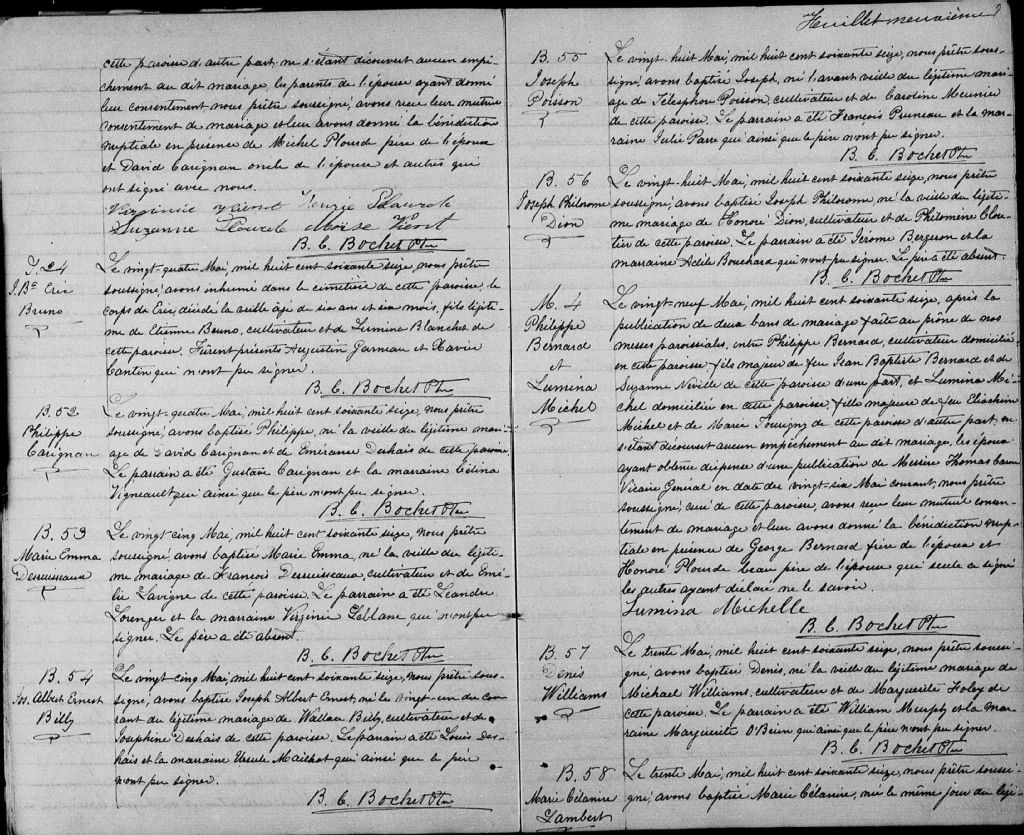 cette paroisse d'autre part ne s'étant découvert aucun empê-
chement au dit mariage, les parents de l'épouse ayant donné
leur consentement nous prêtre soussigné, avons reçu leur mutuel
consentement de mariage et leur avons donné la bénédiction
nuptiale en présence de Michel Plourd père de l'époux
et David Carignan oncle de l'épouse et autres qui
ont signé avec nous.
Virginie
Suzanne Plourde Moïse
B. C. Bochet Ptre
Le vingt-quatre Mai, mil huit cent soixante seize, nous prêtre
soussigné avons inhumé dans le cimetière de cette paroisse, le
corps de Eric, décédé la veille âgé de six ans et six mois, fils légiti-
me de Etienne Bruno, cultivateur et de Lumina Blanchet de
cette paroisse. Furent présents Augustin Garneau et Xavier
Cantin qui n'ont pu signer.
B. C. Bochet Ptre
J. Bte Eric
Bruno
B. 52
Philippe
Carignan
Le vingt-quatre Mai, mil huit cent soixante seize, nous prêtre
soussigné, avons baptisé Philippe, né la veille du légitime mari-
age de David Carignan et de Emérance Deshais de cette paroisse.
Le parrain a été Gustave Carignan et la marraine Célina
Vigneault qui ainsi que le père n'ont pu signer.
B. C. Bochet Ptre
B. 53
Marie Emma
Desruisseaux
Le vingt cinq Mai, mil huit cent soixante seize, nous prêtre
soussigné, avons baptisé Marie Emma, né la veille du légiti-
me mariage de François Desruisseaux, cultivateur et de Emé-
lie Lavigne de cette paroisse. Le parrain a été Léandre
Loranger et la marraine Virginie Leblanc qui n'ont pu
signer. Le père a été absent.
B. C. Bochet Ptre
B. 54
Jos. Albert Ernest
Billy
Le vingt cinq Mai, mil huit cent soixante seize, nous prêtre sous-
signé, avons baptisé Joseph Albert Ernest, né le vingt-un du cou-
rant du légitime mariage de Wallace Billy, cultivateur et de
Josephine Deshais de cette paroisse. Le parrain a été Louis Des-
hais et la marraine Ursule Mailhot qui ainsi que le père
n'ont pu signer.
B. C. Bochet Ptre
Feuillet neuvième 9
B. 55
Joseph
Poisson
Le vingt-huit Mai, mil huit cent soixante seize, nous prêtre sous-
signé, avons baptisé Joseph, né l'avant veille du légitime mari-
age de Télesphore Poisson, cultivateur et de Caroline Meunier
de cette paroisse. Le parrain a été François Pruneau et la mar-
raine Julie Paré qui ainsi que le père n'ont pu signer.
B. C. Bochet Ptre
B. 56
Joseph Philorome
Dion
Le vingt-huit Mai, mil huit cent soixante seize, nous prêtre
soussigné, avons baptisé Joseph Philorome, né la veille du légiti-
me mariage de Honoré Dion, cultivateur et de Philomène Clou-
tier de cette paroisse. Le parrain a été Jérome Bergeron et la
marraine Adèle Bouchard qui n'ont pu signer. Le père a été absent.
B. C. Bochet Ptre
M. 4
Philippe
Bernard
et
Lumina
Michel
Le vingt-neuf Mai, mil huit cent soixante seize, après la
publication de deux bans de mariage faite au prône de nos
messes paroissiales, entre Philippe Bernard, cultivateur domicilié
en cette paroisse fils majeur de feu Jean Baptiste Bernard et de
Suzanne Neville de cette paroisse d'une part, et Lumina Mi-
chel domiciliée en cette paroisse, fille majeure de feu
Michel et de Marie de cette paroisse d'autre part, ne
s'étant découvert aucun empêchement au dit mariage, les époux
ayant obtenu dispense d'une publication de Messire Thomas Caron
Vicaire Général en date du vingt-six Mai courant, nous prêtre
soussigné, curé de cette paroisse, avons reçu leur mutuel consen-
tement de mariage et leur avons donné la bénédiction nup-
tiale en présence de George Bernard frère de l'époux et
Honoré Plourde beau père de l'épouse qui seule a signé
les autres ayant déclaré ne le savoir.
Lumina Michelle
B. C. Bochet Ptre
B. 57
Denis
Williams
Le trente Mai, mil huit cent soixante seize, nous prêtre soussi-
gné, avons baptisé Denis, né la veille du légitime mariage de
Michael Williams, cultivateur et de Marguerite Foley de
cette paroisse. Le parrain a été William Murphy et la mar-
raine Marguerite O'Brien qui ainsi que le père n'ont pu signer.
B. C. Bochet Ptre
B. 58
Marie Célanire
Lambert
Le trente Mai, mil huit cent soixante seize, nous prêtre soussi-
gné, avons baptisé Marie Célanire, née le même jour du légi-